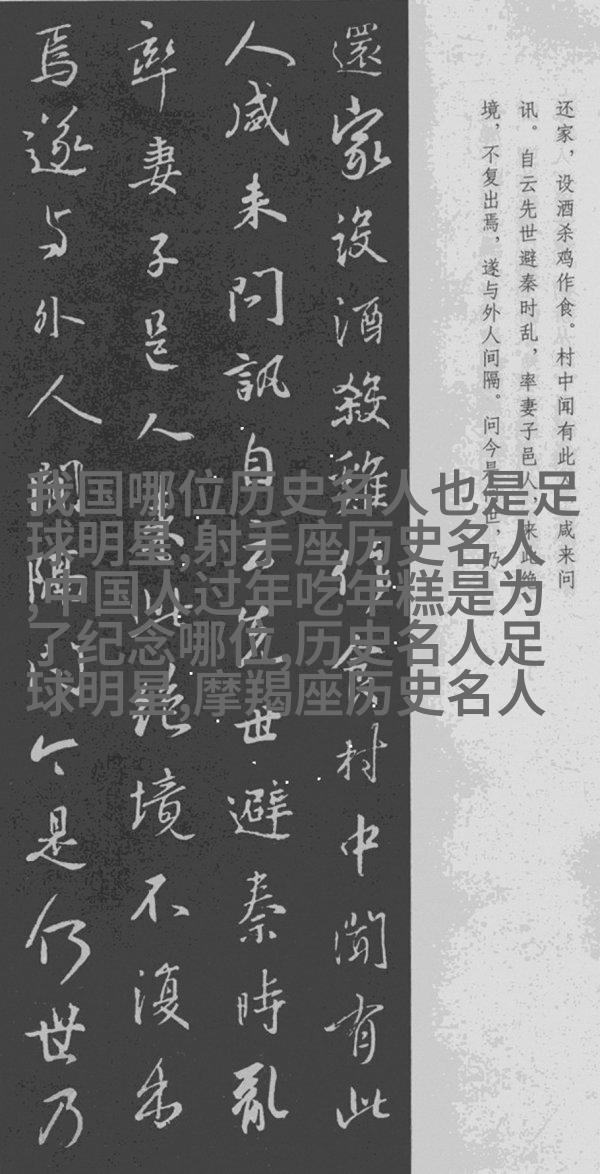 还家，设酒杀鸡作食。村中闻有此人，咸来问
讯。自云先世避秦时乱，率妻子邑人，来此绝
境，不复出焉，遂与外人间隔。问今是何世，乃
還家設酒殺雞作食村中聞有此
人咸来問訊自云先世避秦時亂
率妻子邑人来此絶境不復出
焉遂与外人間隔問今是何世乃
我国哪位历史名人也是足
球明星,射手座历史名人
,中国人过年吃年糕是为
了纪念哪位,历史名人足
球明星,摩羯座历史名人